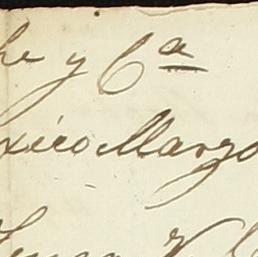 he y Cª
xico Marzo